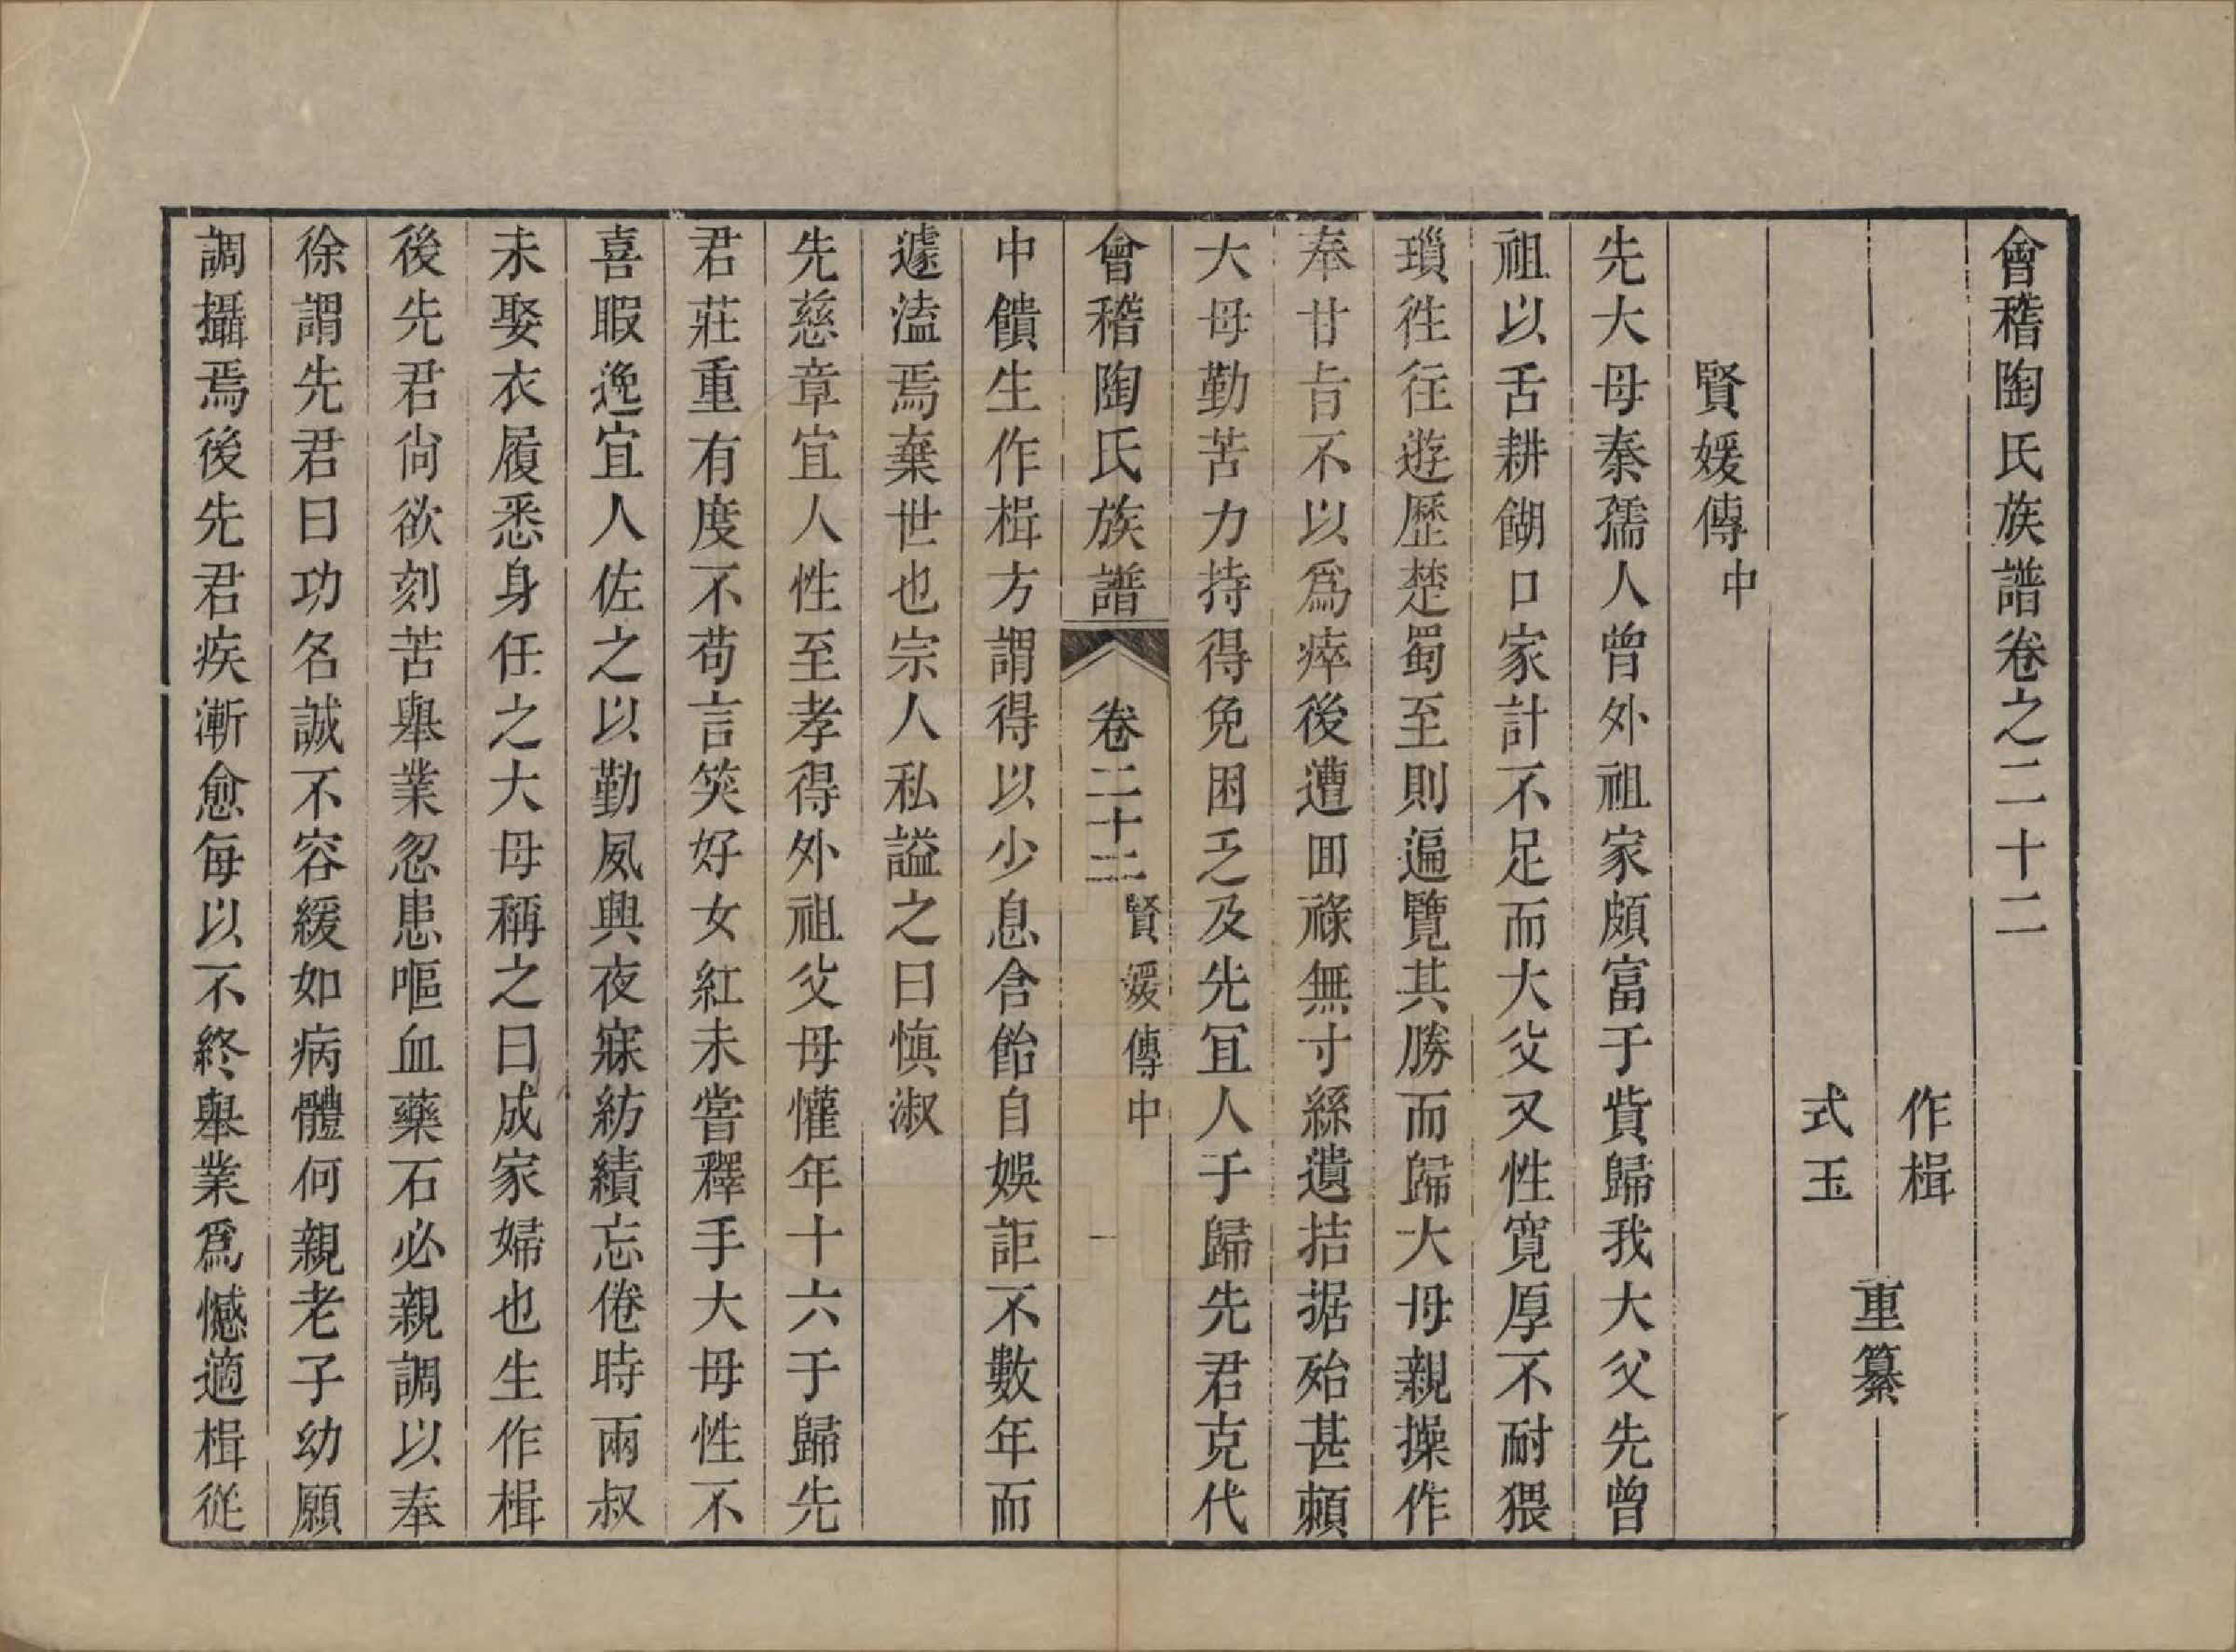 會稽陶氏族譜卷之二十二
作楫
式玉
重纂
賢媛傳中
先大母秦孺人曾外祖家頗富于貲歸我大父先曾
祖以舌耕餬口家計不足而大父又性寬厚不耐猥
瑣徃往遊歷楚蜀至則遍覽其勝而歸大母親操作
奉甘旨不以爲瘁後遭囬祿無寸絲遺拮据殆甚賴
大母勤苦力持得免困乏及先冝人于歸先君克代
會稽陶氏族譜 卷二十二 賢媛傳中 一
中饋生作楫方謂得以少息含飴自娛詎不數年而
遽溘焉棄世也宗人私謚之曰愼淑
先慈章宜人性至孝得外祖父母懽年十六于歸先
君莊重有度不苟言笑好女紅未嘗釋手大母性不
喜暇逸宜人佐之以勤夙興夜寐紡績忘倦時兩叔
未娶衣履悉身任之大母稱之曰成家婦也生作楫
後先君尙欲刻苦舉業忽患嘔血藥石必親調以奉
徐謂先君曰功名誠不容緩如病體何親老子幼願
調攝焉後先君疾漸愈每以不終舉業爲憾適楫從